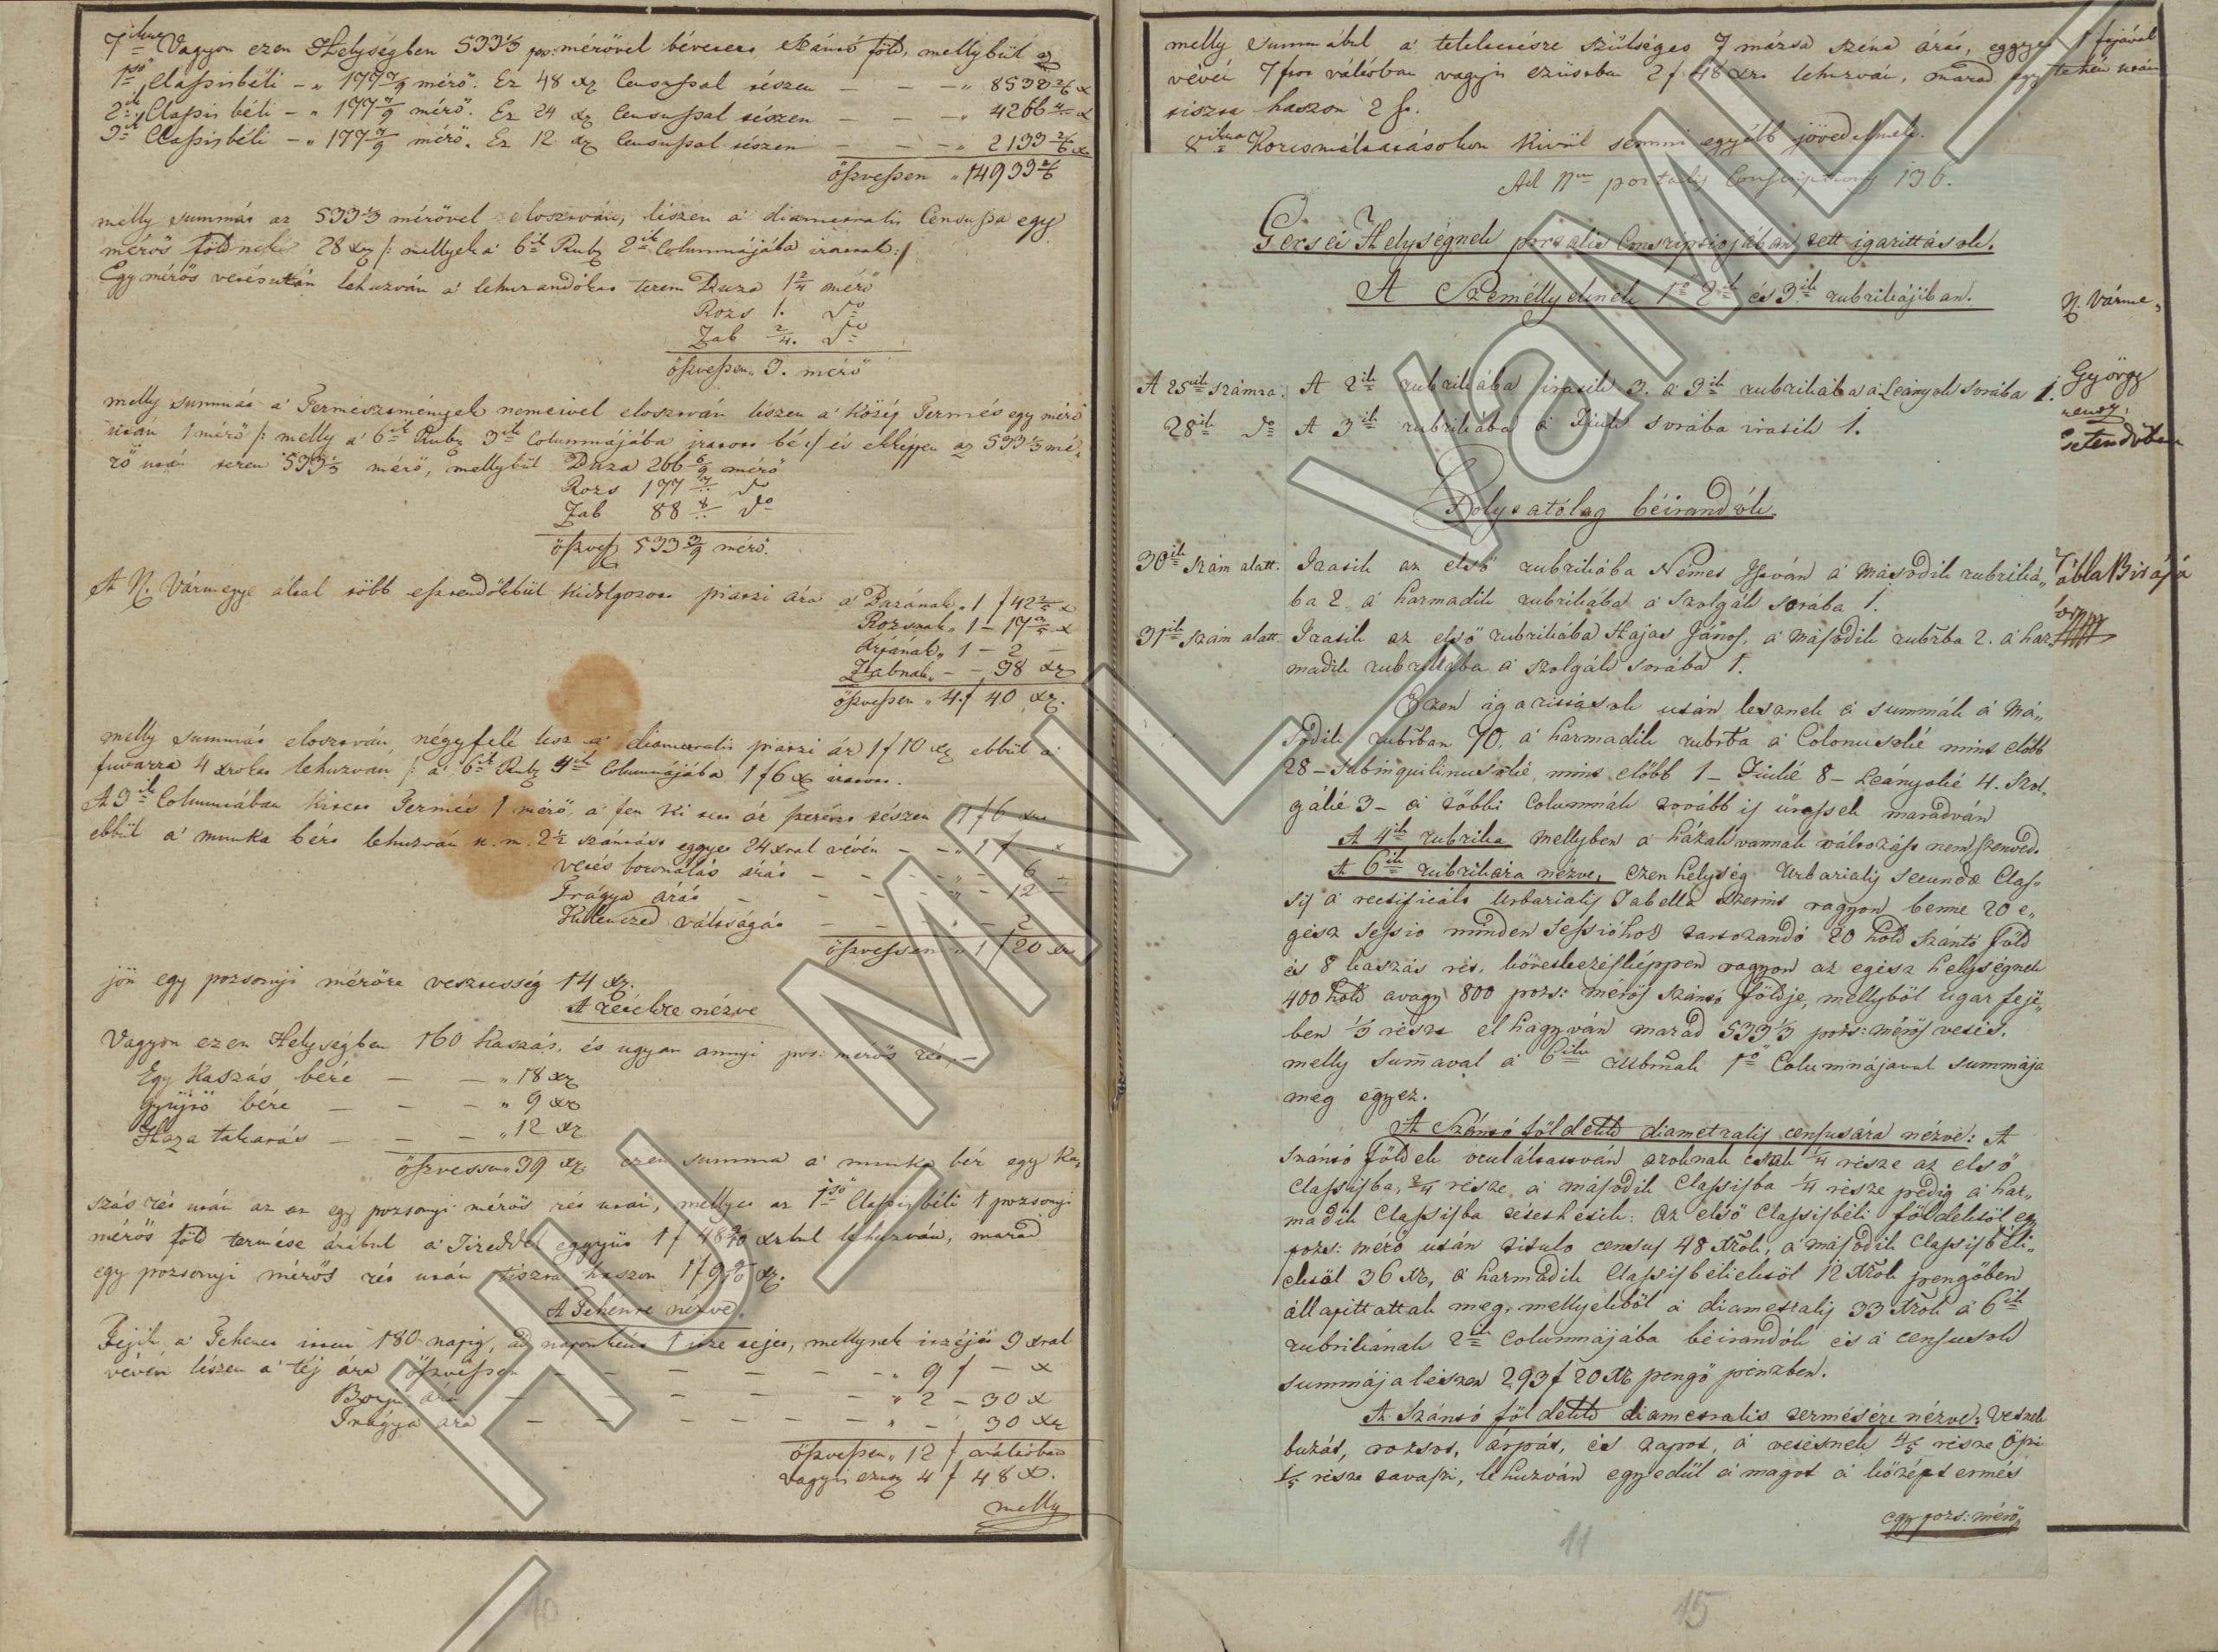 7ikszer Vagyon ezen Helységben 533 1/3 pos: mérővel bévetett szántó föld, mellybül az
1ső Classisbéli – „ 177 7/9 mérő. Ez 48 xr Censussal tészen – – – „ 8533 2/6 x
2ik Classis béli – „ 177 7/9 mérő. Ez 24 xr Censussal tészen – – – „ 4266 4/6 x
3ik Classisbéli – „ 177 7/9 mérő. Ez 12 xr Censussal tészen – – – „ 2133 2/6 x
öszvessen „ 14933 2/6
melly summát az 533 1/3 mérővel eloszván, lészen a' diametralis Censussa egy
mérős földnek 28 xr /: mellyek a' 6ik Rubr 2ik Columnájába iratnak :/
Egy mérős vetés után lehuzván a' lehuzandókat terem Buza 1 2/4 mérő
Rozs 1. do
Zab 2/4. do
öszvessen „ 3. mérő
melly summát a' Termesztmények nemeivel eloszván lészen a' közép Termés egy mérő
után 1 mérő /: melly a' 6ik Rubr 3ik Columnájába iratott bé :/ és ekképpen az 533 1/3 mé,
rő után terem 533 1/3 mérő, mellybül Buza 266 6/9 mérő
Rozs 177 7/.. do
Zab 88 8/.. do
öszvess 533 3/9 mérő.
A N. Vármegye által több esztendőkbül kidolgozott piatzi ára a' Buzának „ 1 f 42 2/5 x
Rozsnak „ 1 – 17 3/5 x
Árpának „ 1 – 2 –
Zabnak „ – 38 xr
öszvessen „ 4 f 40 xr.
melly summát eloszván, négyfelé lesz a' diametralis piatzi ár 1 f 10 xr ebbül a'
fuvarra 4 xrokat lehuzván /: a' 6ik Rubr 4ik Columnájába 1 f 6 x iratott.
A 3ik Columnában kitett Termés 1 mérő a' fen ki tett ár szerént tészen 1 f 6 xr
ebbül a' munka bért lehuzván u. m. 2 1/2 szántást eggyet 24 xral vévén – – „ 1 f – x
vetés boronálás árát – – – – „ – 6 –
Trágya árát – – – – „ – 12 –
Kilenczed váltságát – – – – 2
öszvessen „ 1 f 20 xr
jön egy pozsonyi mérőre vesztesség 14 xr.
A rétekre nézve
Vagyon ezen Helységben 160 kaszás, és ugyan annyi pos: mérős rét, –
Egy Kaszás bére – – „ 18 xr
Gyüjtő bére – – – „ 9 xr
Haza takarás – – – „ 12 xr
öszvessen „ 39 xr ezen summa a' munka bér egy ka,
szás rét után az az egy pozsonyi mérős rét után, mellyet az 1ső Classisbéli 1 pozsonyi
mérős föld termése árábul a' Tizeddel eggyüt 1 f 48 9/10 xrbul lehuzván, marad
egy pozsonyi mérős rét után tiszta haszon 1 f 9 9/10 xr.
A Tehénre nézve.
Fejik a' Tehenet innen 180 napig, ád naponkint 1 itze tejet, mellynek itzéjit 3 xral
vévén lészen a' téj ára öszvessen – – – – – – – „ 9 f – x
Borju ára – – – – – – „ 2 – 30 x
Trágya ára – – – – – – „ – 30 xr
öszvessen „ 12 f váltóban
vagyis ezüst 4 f 48 x.
melly
melly summábul a' teleltetésre szükséges 7 mázsa széna árát, eggyet 1 fjával
vévén 7 frot váltóban vagyis ezüstben 2 f 48 xrt lehuzván, marad egy tehén után
tiszta haszon 2 fr.
8ikszor Kortsmáltatásokon kivül semmi egyébb jövedelmek.
Ad Nrum portalis Conscriptionis 136.
Gersei Helységnek portalis Conscriptiojában tett igazittások.
A Személlyeknek 1ső 2ik és 3ik rubrikájiban.
N. Várme,
A 25ik számra. A 2ik rubrikába iratik 3. a 3ik rubrikába a Leányok sorába 1.
György
28ik do A 3ik rubrikába a Fiúk sorába iratik 1.
Folytatólag béirandók.
30ik szám alatt. Iratik az első rubrikába Némes István a második rubriká„
Tábla Birája
ba 2. a harmadik rubrikába a szolgák sorába 1.
31ik szám alatt Iratik az első rubrikába Hajas János, a második rubrba 2. a har„
madik rubrikába a szolgák sorába 1.
Ezen igazittások után lesznek a summák a má„
sodik rubrban 70, a harmadik rubrba a Colonusoké mint előbb
28 – Subinquilinusoké, mint előbb 1 – Fiúké 8 – Leányoké 4. Szol,
gáké 3 – a többi Columnák tovább is üressek maradván
A 4ik rubrika mellyben a házak vannak változást nem szenved.
A 6ik rubrikára nézve, ezen hélység Urbarialis secundae Clas„
sis a rectificált Urbarialis Tabella szerint vagyon benne 20 e„
gész sessio minden sessióhoz tartozandó 20 hold szántó föld
és 8 kaszás rét, következésképpen vagyon az egész helységnek
400 hold avagy 800 pozs: mérős szántó földje, mellyböl ugar fejé„
ben 1/3 részt el hagyván marad 533 1/3 pozs: mérős vetés,
melly summával a 6ik rubrnak 1ső Columnájával summája
meg egyez.
A Szántó földekk diametralis censusára nézve: A
szántó földek oculáltatván azoknak csak 1/4 része az első
Classisba, 2/4 része a második Classisba 1/4 része pedig a har„
madik Classisba tétethetik: az első Classisbéli földektöl egy
pozs: mérő után titulo census 48 Xrok, a második Classisbéli„
ektöl 36 Xr, a harmadik Classisbéliektöl 12 Xrok pengőben
állapittattak meg, mellyekböl a diametralis 33 Xrok a 6ik
rubrikának 2ik Columnájába béirandók és a censusok
summája lészen 293 f 20 Xr pengő pénzben.
A Szántó földekk diametralis termésére nézve: Vetnek
buzát, rozsot, árpát, és zapot, a vetésnek 4/5 része öszi
1/5 része tavaszi, lehuzván egyedül a magot a középtermés
egy pozs: mérő
11
15